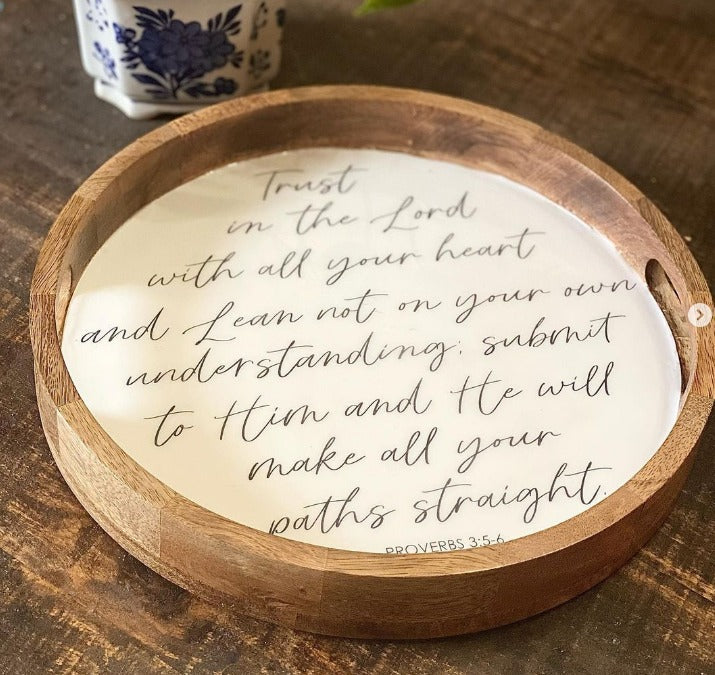 Trust
in the Lord
with all your heart
and Lean not on your own
understanding; submit
to Him and He will
make all your
paths straight.
PROVERBS 3:5-6